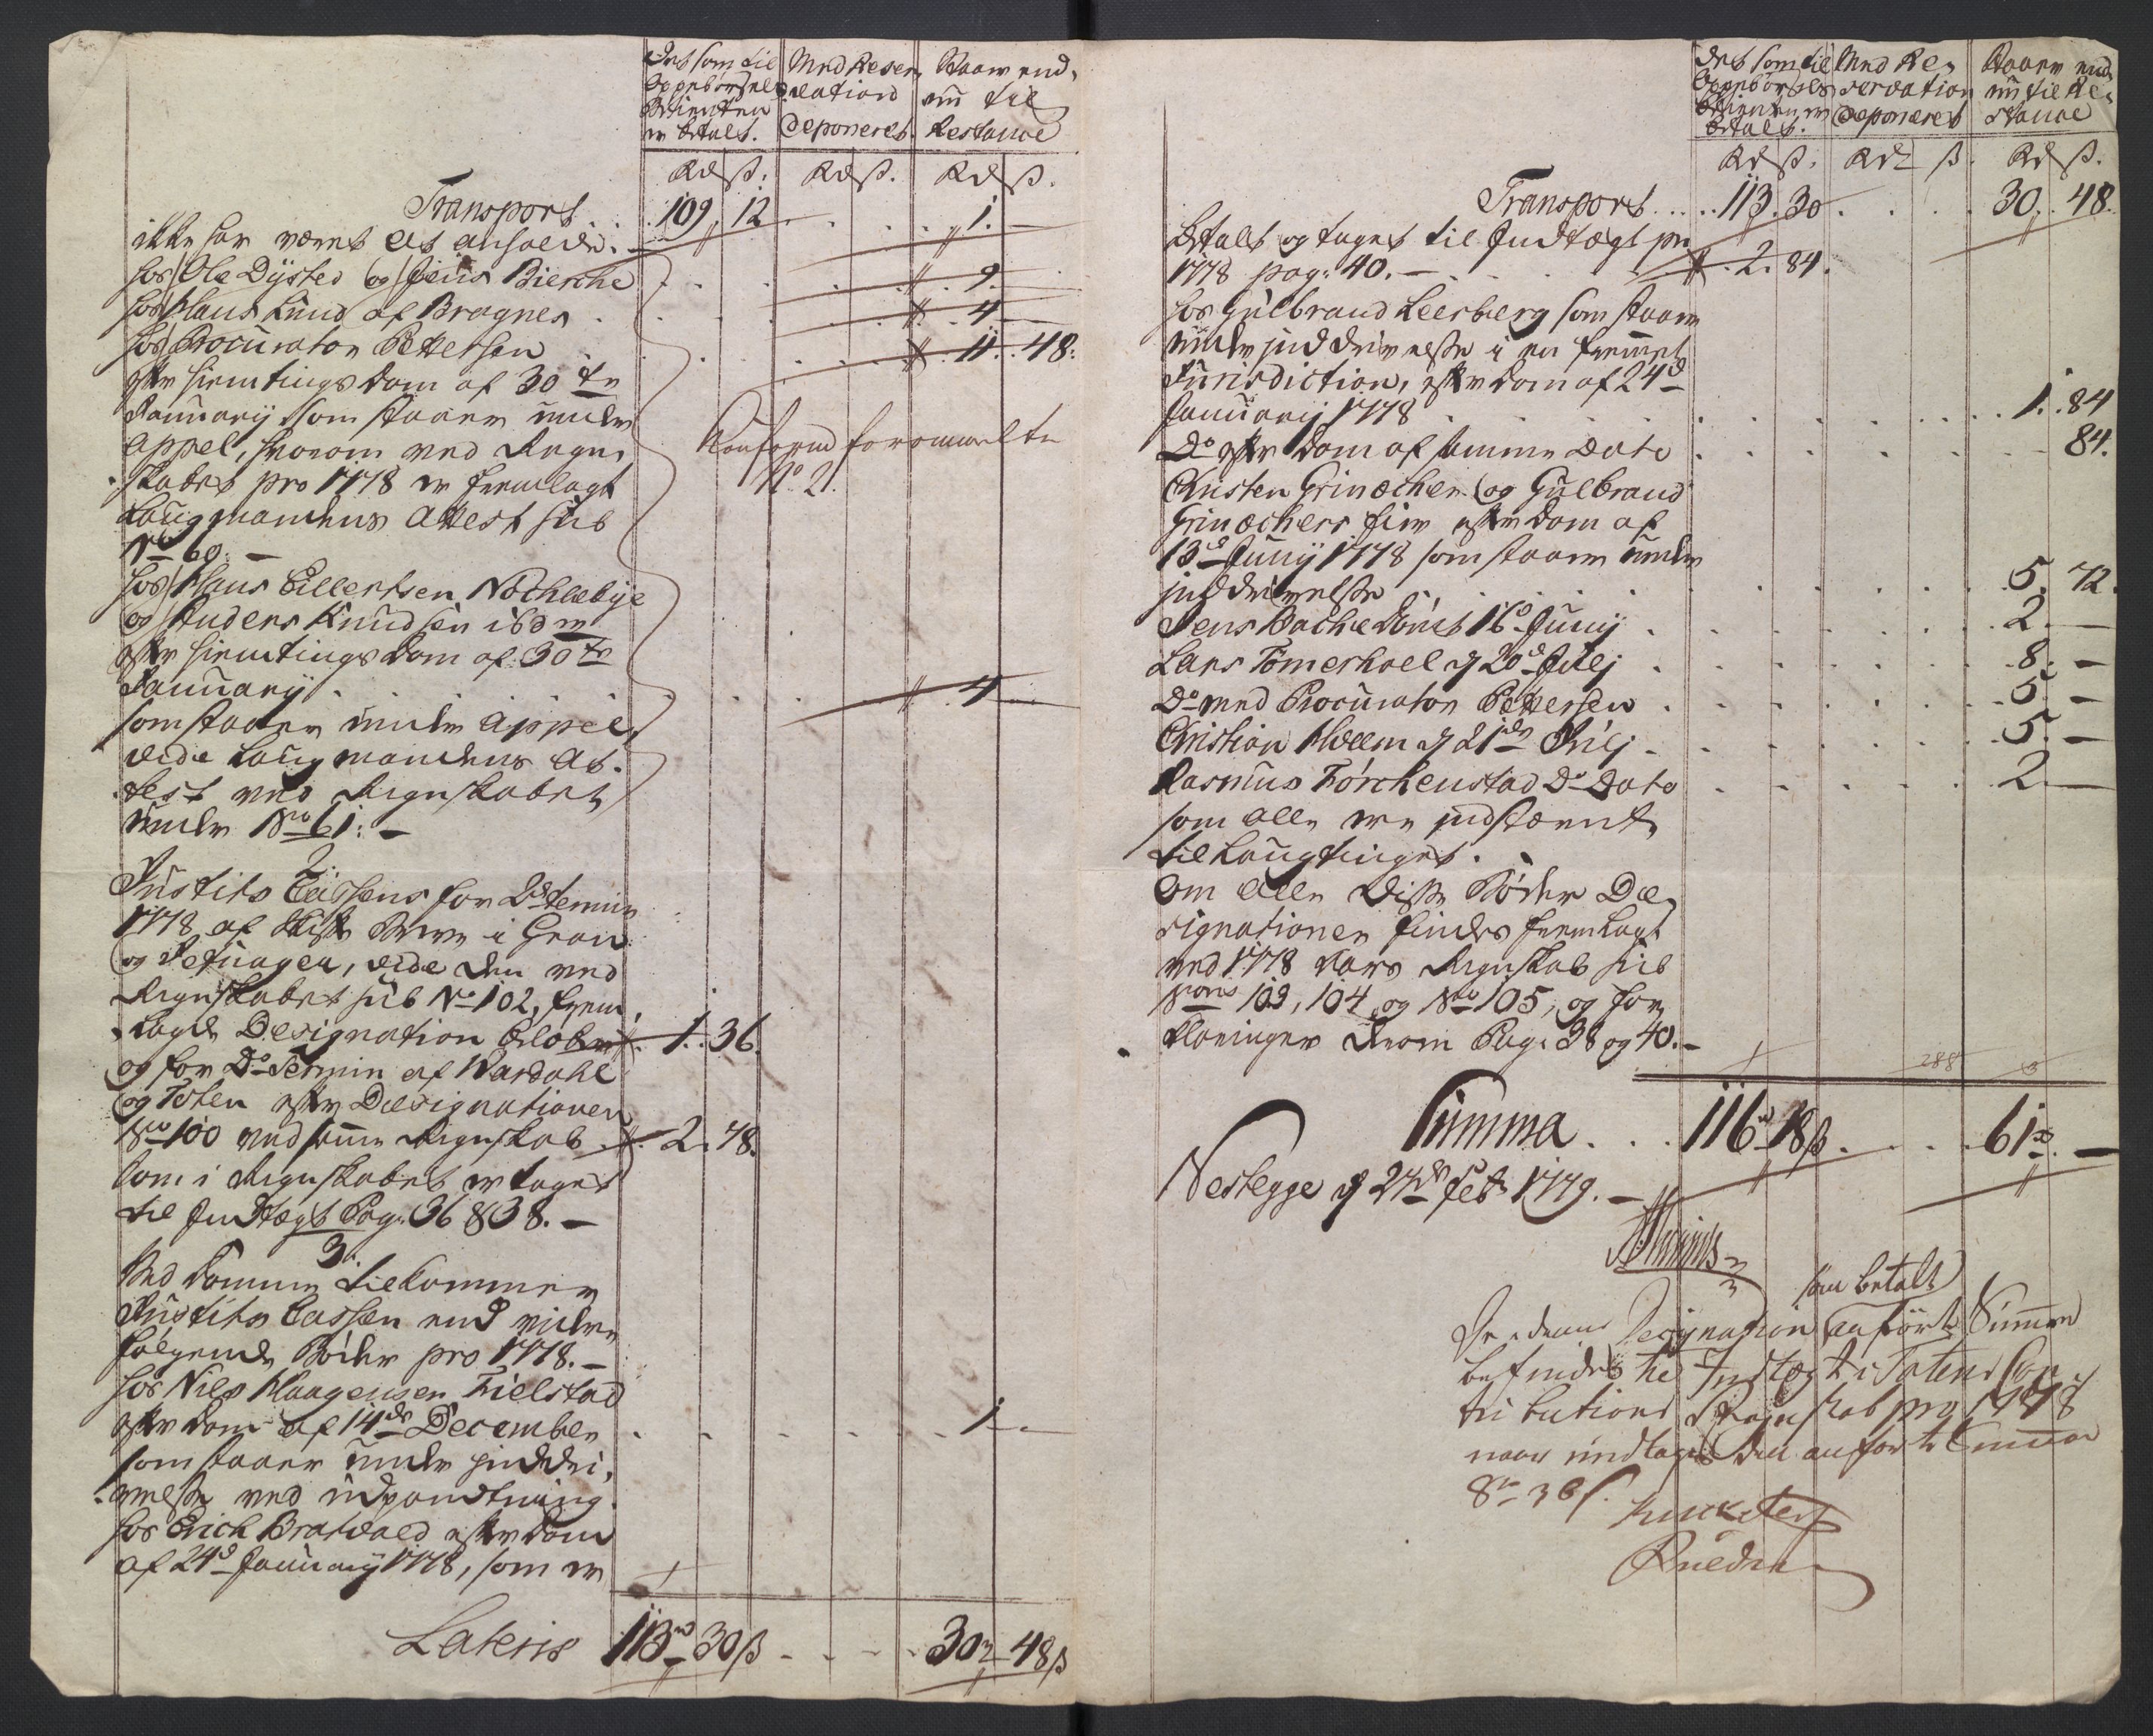 Det som til
Oppebørsels
Betienten
er betalt.
Med Reser,
vation
deponeret.
Staar end,
nu til
Restance
Rd ß. Rd ß. Rd ß.
Transport. 109. 12 1. -
ikke har været at anholde.
hos Ole Dysted og Jens Bierche 9. -
hos Hans Lund af Bragnes 4 -
hos Procurator Pettersen 11. 48.
efter hiemtings dom af 30te
January som staaer under
appel, hvorom ved Regn,
skabet pro 1778 er fremlagt
Laugmandens Attest sub
No 60. -
hos Hans Eillertsen Nøchlebye
og Anders Knudsen ibdm
efter hiemtings dom af 30te
January 4 -
som staaer under Appel
vide Laugmandens At,
test ved Regnskabet
under No 61: -
No 2.
2.
Justits Cassens for 2d termin
1778 af Skifte Breve i Gran
og Jefnager, vide den ved
Regnskabet sub No 102, frem,
lagde Designation Beløber 1. 36.
og for Do Termin af Wardahl
og Toten efter Designationen
No 100 ved samme Regnskab 2. 48.
som i Regnskabet er taget
til Indtægt Pag. 36 & 38. -
3.
Ved Domme tilkommer
Justits Cassen end videre
følgende Bøder pro 1778. -
hos Nils Haagensen Fielstad
efter dom af 14de December 1 -
som staaer under inddri,
velse ved udpandtning.
hos Erich Bratvold efter dom
af 24d January 1778, som er
Lateris 113rd 30ß 30r 48ß
Det som til
Oppebørsels
Betienten er
betalt.
Med Re,
servation
deponeret
Staaer end
nu til Re,
stance
Rd ß. Rd ß. Rd ß.
Transport 113. 30 30. 48.
betalt og taget til Indtægt pro
1778 pag: 40. - 2. 84.
hos Gulbrand Leerberg som staaer
under inddrivelse i en fremmet
Jurisdiction, efter dom af 24d
January 1778 1. 84
Do efter dom af samme Dato 84.
Christen Grinæcher og Gulbrand
Grinæchers efter dom af
13d Juny 1778 som staaer under
inddrivelse 5. 72.
Jens Bache dømt 16d Juny 2. -
Lars Tømerhoel d 20d Julj 8. -
Do med Procurator Pettersen 5. -
Christian Hveem d 21de Julj 5. -
Rasmus Førchenstad Do Dato 2. -
som alle ere indstævnt
til Laugtinget.
Om alle disse Bøder De,
signationer findes fremlagt
ved 1778 Aars Regnskab sub
Nris 103, 104 og No 105, og for,
klaringer derom Pag. 38 og 40. -
288
Summa 116rd 18ß 61rd -
Nestegge d 27de Feb: 1779. -
som betalt
Designation anførte Summa
befindes til Indtægt i Totens Con
tributions Regnskab pro 1778
naar undtages den anførte Summa